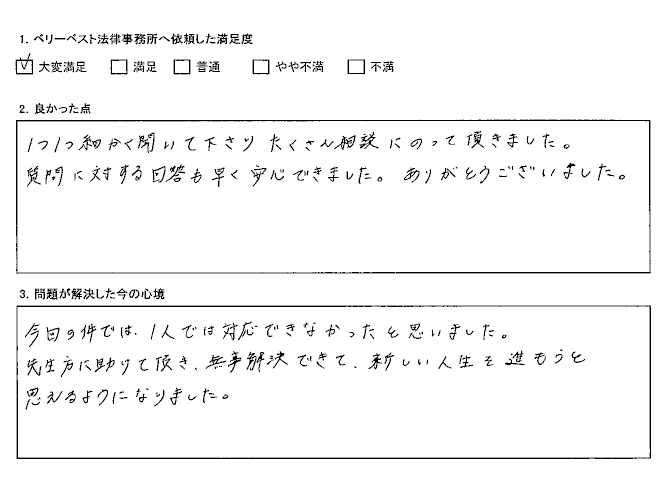 1. ベリーベスト法律事務所へ依頼した満足度
☑ 大変満足 □ 満足 □ 普通 □ やや不満 □ 不満
2. 良かった点
1つ1つ細かく聞いて下さり たくさん相談にのって頂きました。
質問に対する回答も早く安心できました。ありがとうございました。
3. 問題が解決した今の心境
今回の件では、1人では対応できなかったと思いました。
先生方に助けて頂き、無事解決できて、新しい人生を進もうと
思えるようになりました。